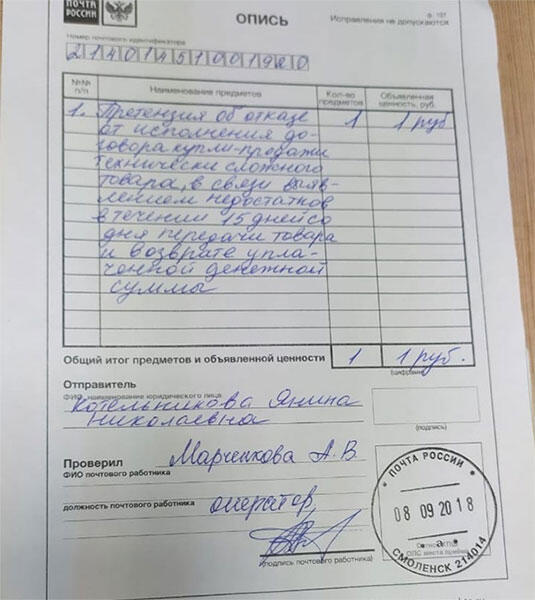 ПОЧТА
РОССИИ
ОПИСЬ
ф. 107
Исправления не допускаются
Номер почтового идентификатора
21401451001920
№№ п/п Наименование предметов Кол-во предметов Объявленная ценность, руб.
1. Претензия об отказе 1 1 руб
от исполнения до-
говора купли-продажи
технически сложного
товара, в связи выяв-
лением недостатков
в течении 15 дней со
дня передачи товара
и возврате упла-
ченной денежной
суммы
Общий итог предметов и объявленной ценности 1 1 руб.
(цифрами)
Отправитель
ФИО, наименование юридического лица
Котельникова Янина
Николаевна
(подпись)
Проверил Марченкова А.В
ФИО почтового работника
должность почтового работника оператор
(подпись почтового работника)
ПОЧТА РОССИИ
08 09 20 18
ОПС места приёма
а
СМОЛЕНСК 214014